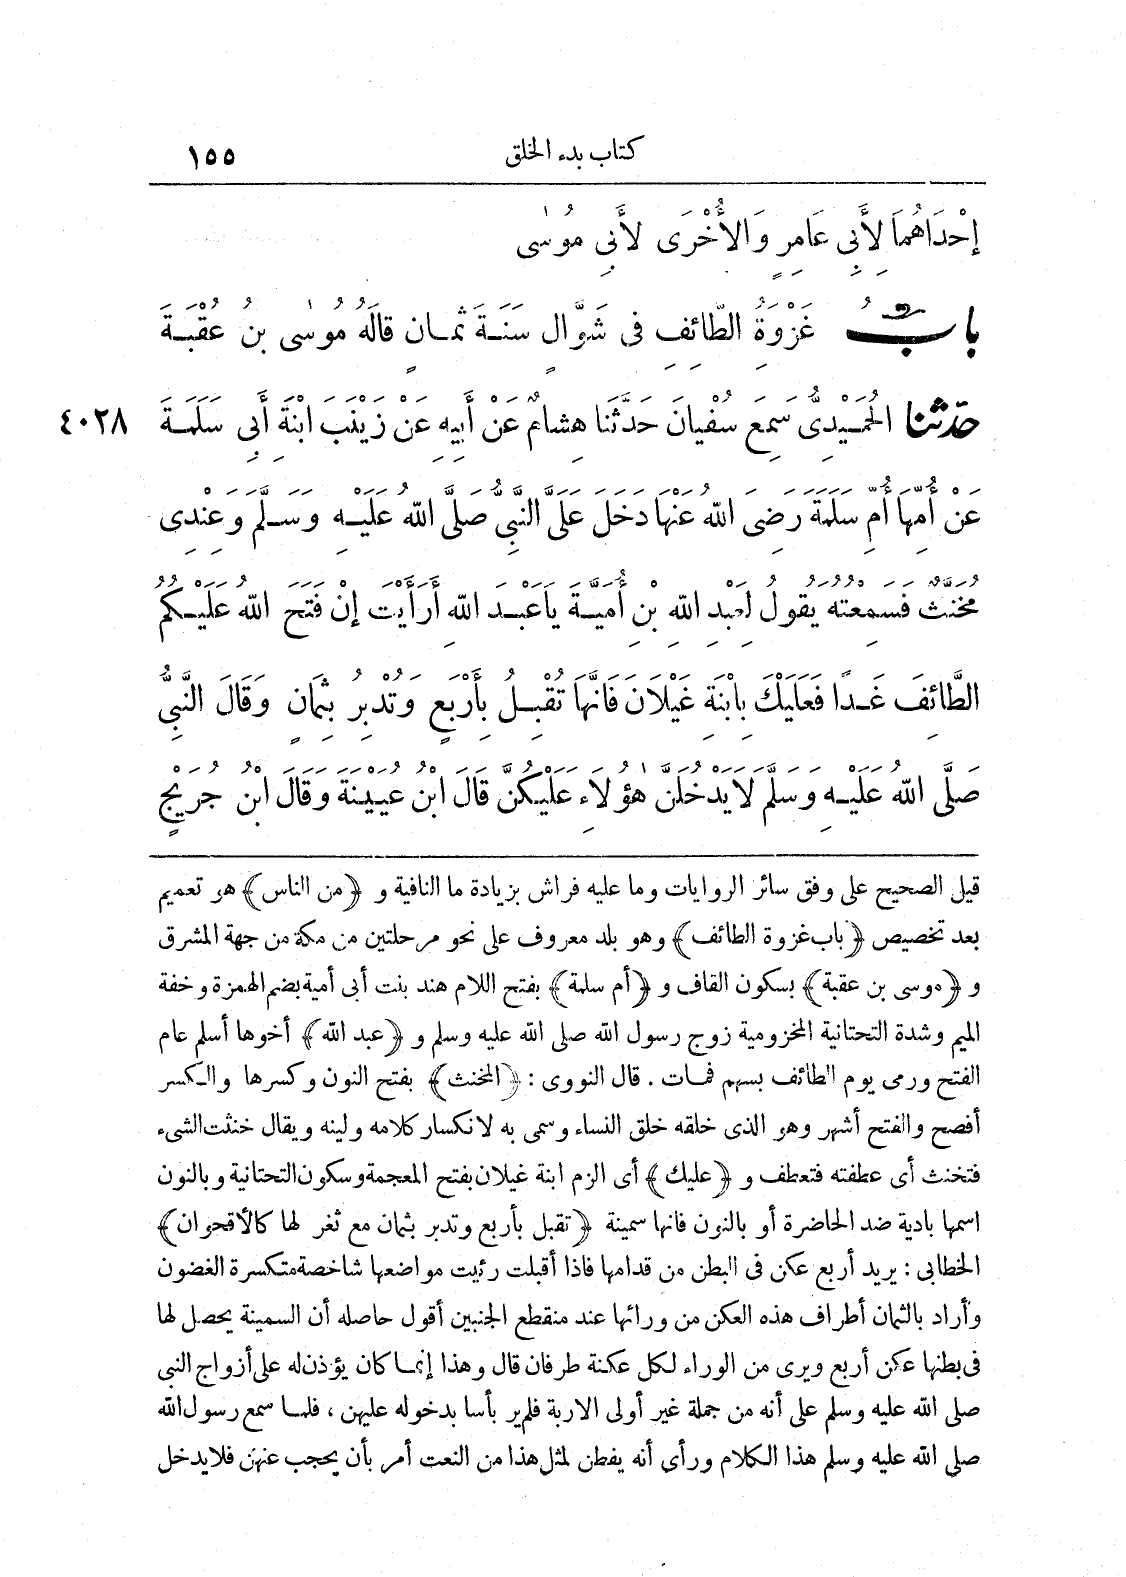 كتاب بدء الخلق ١٥٥
إِحْدَاهُمَا لِأَبِي عَامِرٍ وَالْأُخْرَى لِأَبِي مُوسَى
بابُ غَزْوَةِ الطَّائِفِ فِى شَوَّالٍ سَنَةَ ثَمَانٍ قَالَهُ مُوسَى بْنُ عُقْبَةَ
حَدَّثَنَا الْحُمَيْدِىُّ سَمِعَ سُفْيَانَ حَدَّثَنَا هِشَامٌ عَنْ أَبِيهِ عَنْ زَيْنَبَ ابْنَةِ أَبِى سَلَمَةَ ٤٠٢٨
عَنْ أُمِّهَا أُمِّ سَلَمَةَ رَضِىَ اللهُ عَنْهَا دَخَلَ عَلَىَّ النَّبِىُّ صَلَّى اللهُ عَلَيْهِ وَسَلَّمَ وَعِنْدِى
مُخَنَّثٌ فَسَمِعْتُهُ يَقُولُ لِعَبْدِ اللهِ بْنِ أُمَيَّةَ يَا عَبْدَ اللهِ أَرَأَيْتَ إِنْ فَتَحَ اللهُ عَلَيْكُمُ
الطَّائِفَ غَدًا فَعَلَيْكَ بِابْنَةِ غَيْلَانَ فَانَّهَا تُقْبِلُ بِأَرْبَعٍ وَتُدْبِرُ بِثَمَانٍ وَقَالَ النَّبِىُّ
صَلَّى اللهُ عَلَيْهِ وَسَلَّمَ لَا يَدْخُلَنَّ هٰؤُلَاءِ عَلَيْكُنَّ قَالَ ابْنُ عُيَيْنَةَ وَقَالَ ابْنُ جُرَيْجٍ
قيل الصحيح على وفق سائر الروايات وما عليه فراش بزيادة ما النافية و ﴿من الناس﴾ هو تعميم
بعد تخصيص ﴿باب غزوة الطائف﴾ وهو بلد معروف على نحو مرحلتين من مكة من جهة المشرق
و ﴿موسى بن عقبة﴾ بسكون القاف و ﴿أم سلمة﴾ بفتح اللام هند بنت أبى أمية بضم الهمزة وخفة
الميم وشدة التحتانية المخزومية زوج رسول الله صلى الله عليه وسلم و ﴿عبد الله﴾ أخوها أسلم عام
الفتح ورمى يوم الطائف بسهم فمات . قال النووى : ﴿المخنث﴾ بفتح النون وكسرها والكسر
أفصح والفتح أشهر وهو الذى خلقه خلق النساء وسمى به لانكسار كلامه ولينه ويقال خنثت الشىء
فتخنث أى عطفته فتعطف و ﴿عليك﴾ أى الزم ابنة غيلان بفتح المعجمة وسكون التحتانية وبالنون
اسمها بادية ضد الحاضرة أو بالنون فانها سمينة ﴿تقبل بأربع وتدبر بثمان مع ثغر لها كالأقحوان﴾
الخطابى : يريد أربع عكن فى البطن من قدامها فاذا أقبلت رئيت مواضعها شاخصة متكسرة الغضون
وأراد بالثمان أطراف هذه العكن من ورائها عند منقطع الجنبين أقول حاصله أن السمينة يحصل لها
فى بطنها عكن أربع ويرى من الوراء لكل عكنة طرفان قال وهذا إنما كان يؤذن له على أزواج النبى
صلى الله عليه وسلم على أنه من جملة غير أولى الاربة فلم ير بأسا بدخوله عليهن ، فلما سمع رسول الله
صلى الله عليه وسلم هذا الكلام ورأى أنه يفطن لمثل هذا من النعت أمر بأن يحجب عنهن فلا يدخل